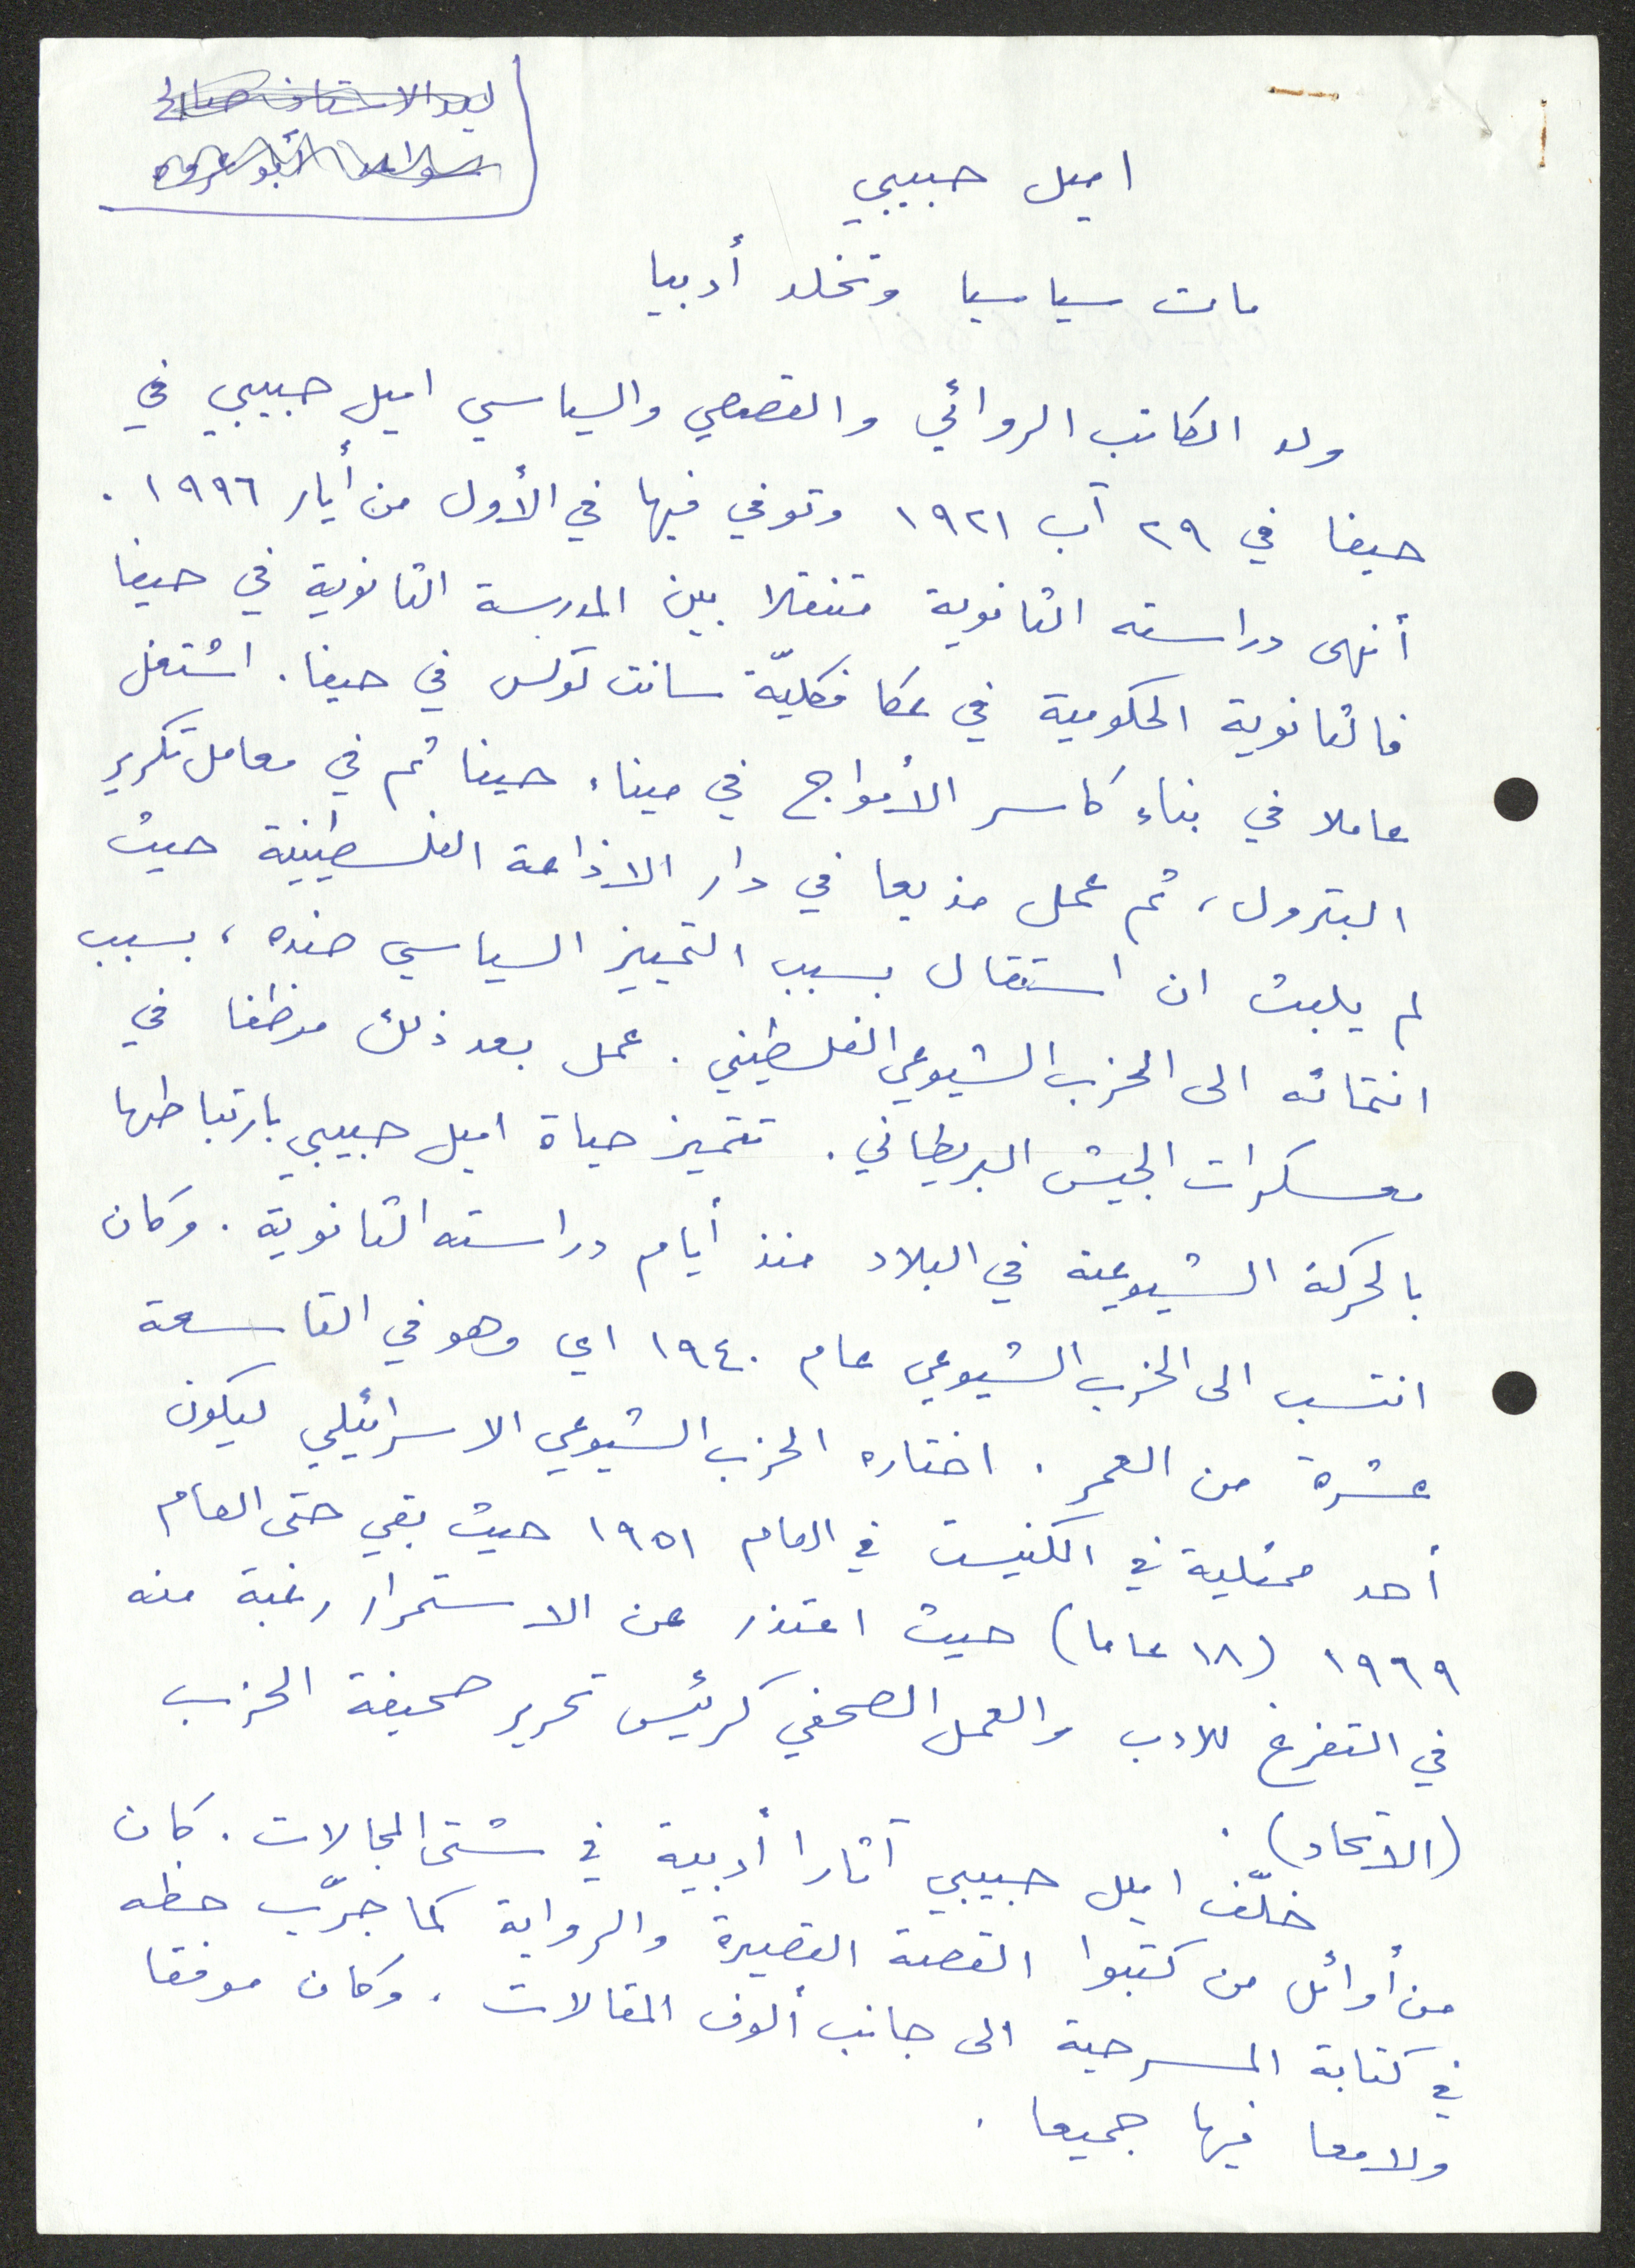 ليد الاستاذ صالح
اميل حبيبي
مات سياسيا وتخلد أدبيا
ولد الكاتب الروائي والقصصي والسياسي اميل حبيبي في
حيفا في ٢٩ آب ١٩٢١ وتوفي فيها في الأول من أيار ١٩٩٦.
أنهى دراسته الثانوية متنقلا بين المدرسة الثانوية في حيفا
فالثانوية الحكومية في عكا فكليّة سانت لوكس في حيفا. اشتغل
عاملا في بناء كاسر الأمواج في ميناء حيفا ثم في معامل تكرير
البترول، ثم عمل مذيعا في دار الاذاعة الفلسطينية حيث
لم يلبث ان استقال بسبب التمييز السياسي ضده، بسبب
انتمائه الى الحزب الشيوعي الفلسطيني. عمل بعد ذلك موظفا في
معسكرات الجيش البريطاني. تتميز حياة اميل حبيبي بارتباطها
بالحركة الشيوعية في البلاد منذ أيام دراسته الثانوية. وكان
انتسب الى الحزب الشيوعي عام ١٩٤٠ اي وهو في التاسعة
عشرة من العمر. اختاره الحزب الشيوعي الاسرائيلي ليكون
أحد ممثلية في الكنيست في العام ١٩٥١ حيث بقي حتى العام
١٩٦٩ (١٨ عاما) حيث اعتذر عن الاستمرار رغبة منه
في التفرغ للادب والعمل الصحفي كرئيس تحرير صحيفة الحزب
(الاتحاد).
خلّف اميل حبيبي آثارا أدبية في شتى المجالات. كان
من أوائل من كتبوا القصة القصيرة والرواية كما جرّب حظه
في كتابة المسرحية الى جانب ألوف المقالات. وكان موفقا
ولامعا فيها جميعا.